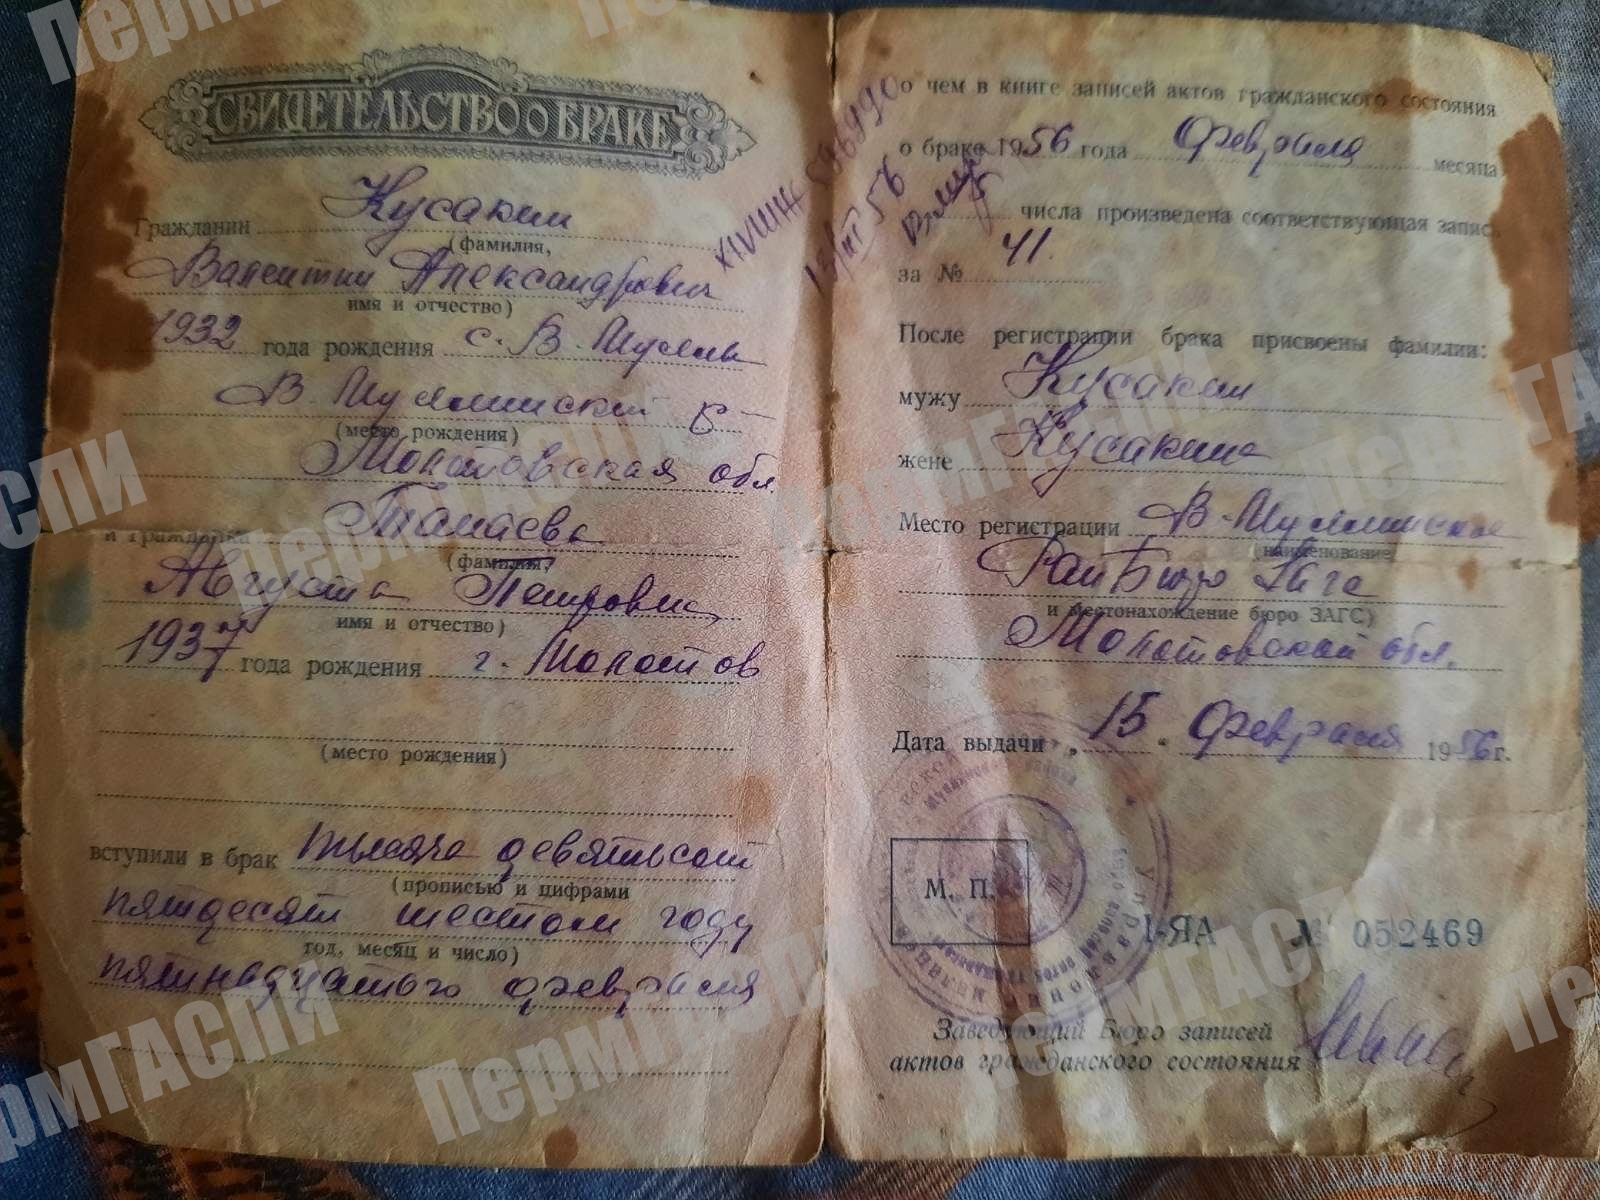 СВИДЕТЕЛЬСТВО о БРАКЕ
Гражданин Кусакин
(фамилия,
Валентин Александрович
имя и отчество)
1932 года рождения с. В-Муллы
В. Муллинский р-
(место рождения)
Молотовская обл.
и гражданка
(фамилия,
Августа Петровна
имя и отчество)
1937 года рождения г. Молотов
(место рождения)
вступили в брак тысяча девятьсот
(прописью и цифрами
пятдесят шестом году
год, месяц и число)
пятнадцатого февраля
XIVШИЖ 596990
56
о чем в книге записей актов гражданского состояния
о браке 1956 года Февраля месяца
15 числа произведена соответствующая запись
за № 41.
После регистрации брака присвоены фамилии:
мужу Кусакин
жене Кусакина
Место регистрации В-Муллинское
(наименование
РайБюро Загс
и местонахождение бюро ЗАГС)
Молотовской обл.
Дата выдачи „15" Февраля 1956 г.
М. П.
I-ЯА № 052469
Заведующий Бюро записей
актов гражданского состояния
ПермГАСПИ